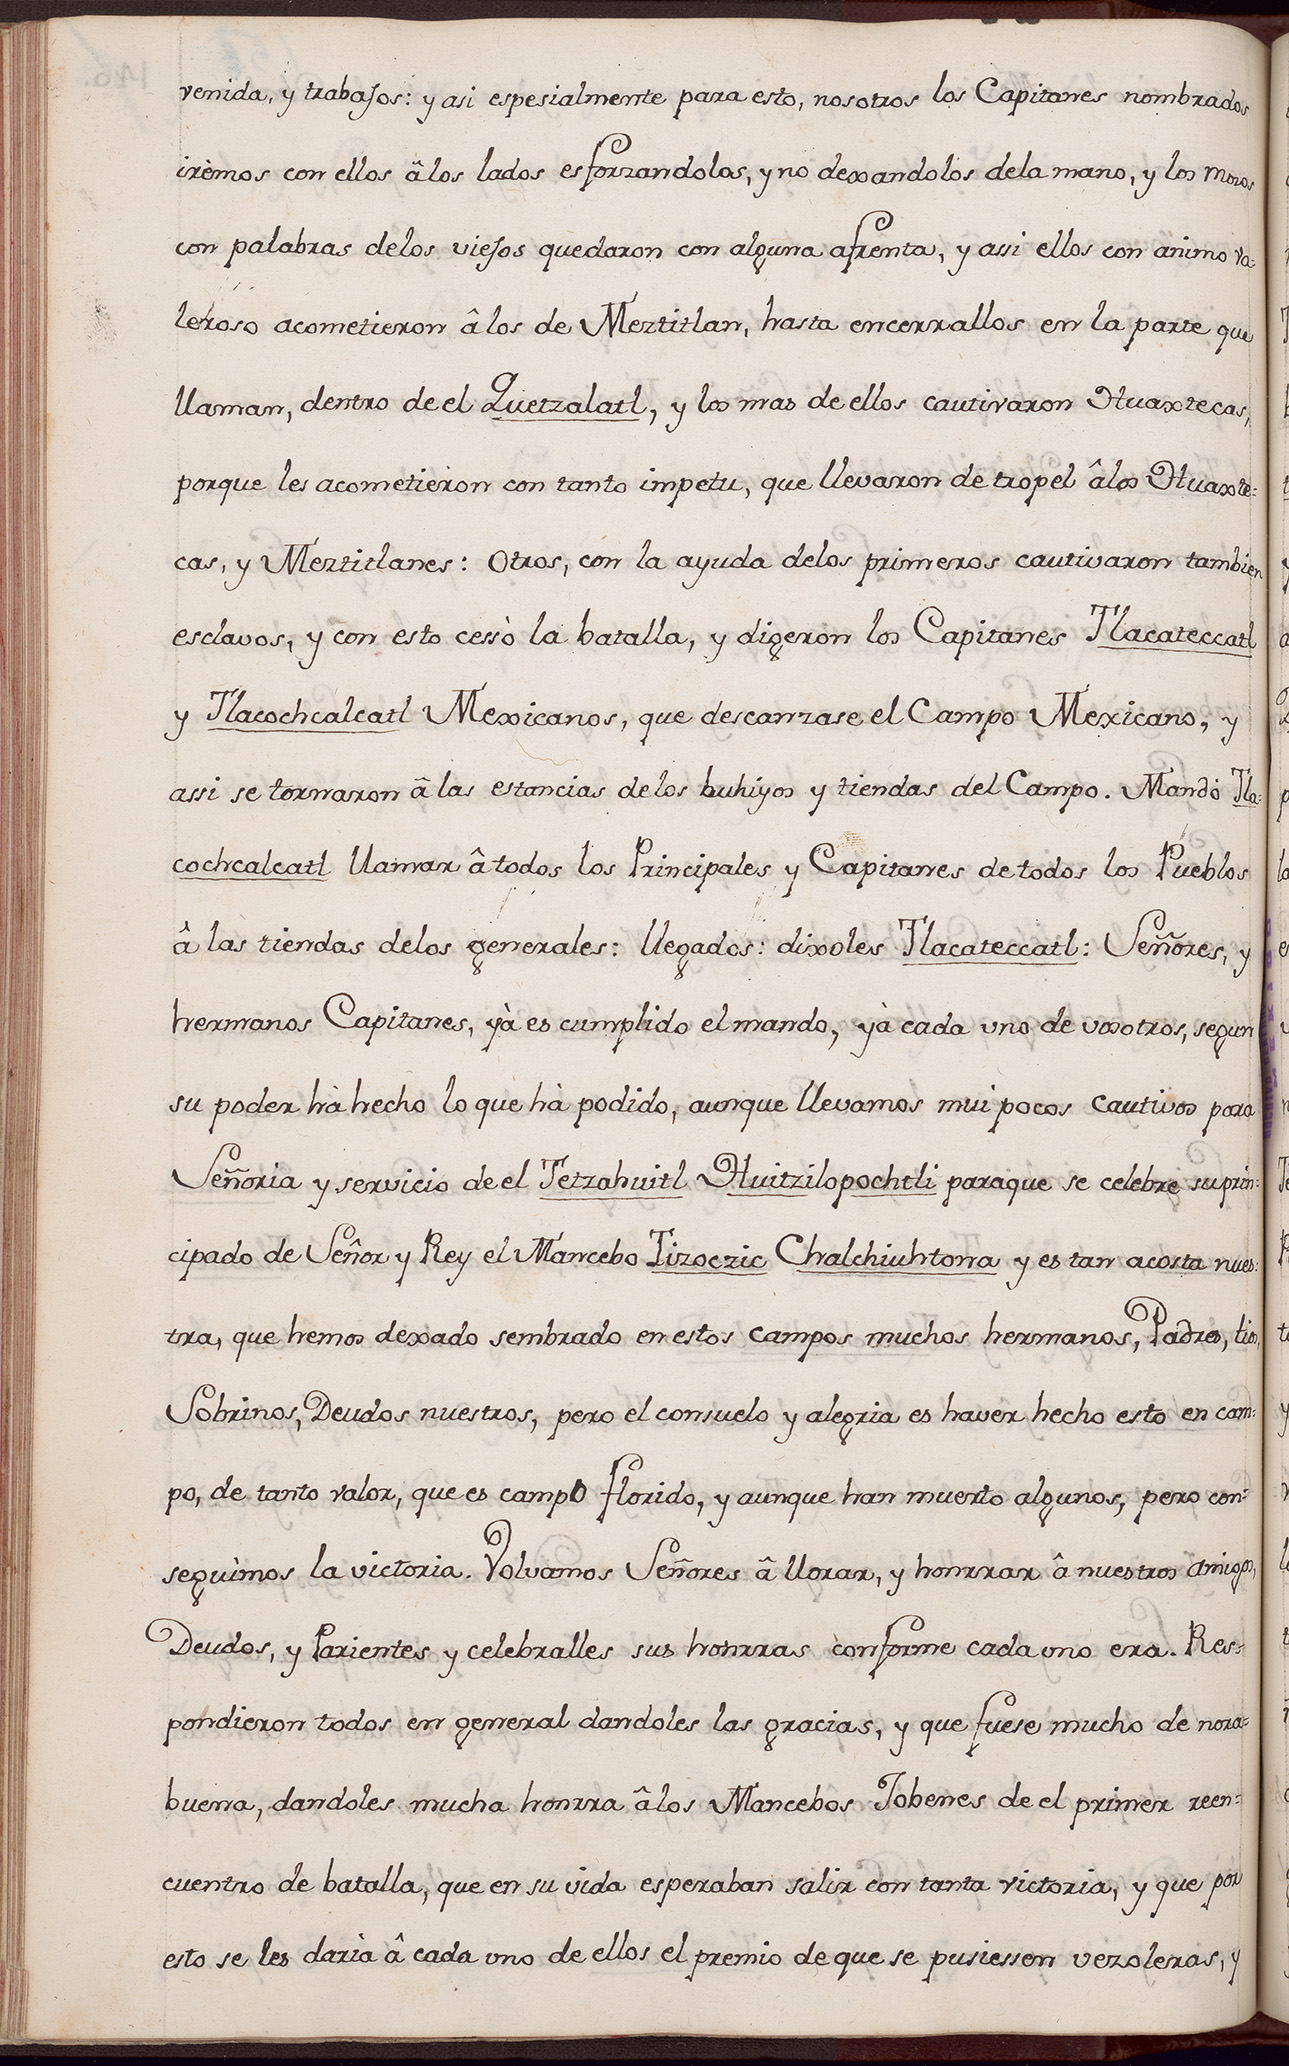 venida, y trabajos: y asi espesialmente para esto, nosotros los Capitanes nombrados
irèmos con ellos â los lados esforzandolos, y no dexandolos dela mano, y los Mozos
con palabras delos viejos quedaron con alguna afrenta, y assi ellos con animo va-
leroso acometieron â los de Meztitlan, hasta encerrallos en la parte que
llaman, dentro de el Quetzalatl, y los mas de ellos cautivaron Huaxtecas,
porque les acometieron con tanto impetu, que llevaron de tropel âlos Huaxte-
cas, y Meztitlanes: Otros, con la ayuda delos primeros cautivaron tambien
esclavos, y con esto cessò la batalla, y digeron los Capitanes Tlacateccatl
y Tlacochcalcatl Mexicanos, que descanzase el Campo Mexicano, y
assi se tornaron â las estancias de los buhiyos y tiendas del Campo. Mandò Tla-
cochcalcatl llamar â todos los Principales y Capitanes de todos los Pueblos
â las tiendas delos generales: llegados: dixoles Tlacateccatl: Señores, y
hermanos Capitanes, yà es cumplido el mando, yà cada uno de vosotros, segun
su poder hà hecho lo que hà podido, aunque llevamos mui pocos cautivos para
Señoria y servicio de el Tetzahuitl Huitzilopochtli paraque se celebre su prin-
cipado de Señor y Rey el Mancebo Tizoczic Chalchiuhtona y es tan acosta nues-
tra, que hemos dexado sembrado en estos campos muchos hermanos, Padres, tios,
Sobrinos, Deudos nuestros, pero el consuelo y alegria es haver hecho esto en cam-
po, de tanto valor, que es campo florido, y aunque han muerto algunos, pero con-
seguìmos la victoria. Volvamos Señores â llorar, y honrrar â nuestros amigos,
Deudos, y Parientes y celebralles sus honrras conforme cada uno era. Res-
pondieron todos en general dandoles las gracias, y que fuese mucho de nora-
buena, dandoles mucha honrra âlos Mancebos Jobenes de el primer reen-
cuentro de batalla, que en su vida esperaban salir con tanta victoria, y que por
esto se les darìa â cada uno de ellos el premio de que se pusiessen vezoleras, y